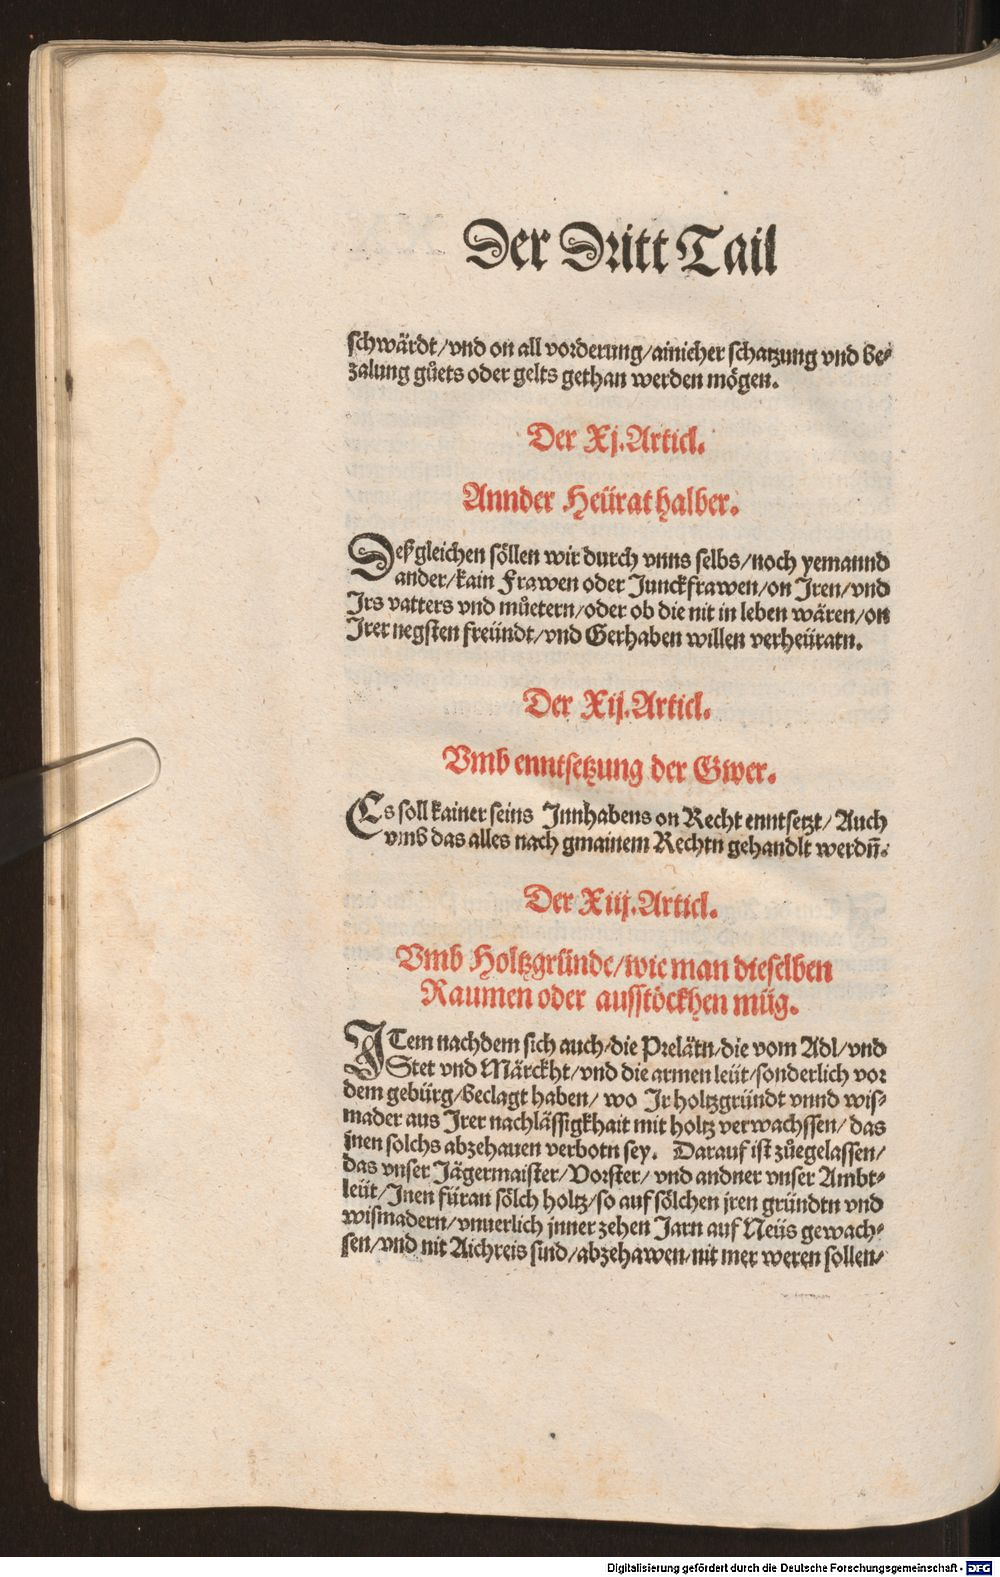 Der Dritt Tail
schwärdt/vnd on all vorderung/ainicher schatzung vnd be⸗
zalung güets oder gelts gethan werden mögen.
Der Xj. Articl.
Annder Heürat halber.
Deß gleichen söllen wir durch vnns selbs/noch yemannd
ander/kain Frawen oder Junckfrawen/on Iren/vnd
Irs vatters vnd müetern/oder ob die nit in leben wären/on
Irer negsten freündt/vnd Gerhaben willen verheüratn.
Der Xij. Articl.
Vmb enntsetzung der Gwer.
Es soll kainer seins Innhabens on Recht enntsetzt/ Auch
vmb das alles nach gmainem Rechtn gehandlt werdn̄.
Der Xiij. Articl.
Vmb Holtzgründe/wie man dieselben
Raumen oder ausstöckhen müg.
ITem nachdem sich auch/die Prelätn/die vom Adl/vnd
Stet vnd Märckht/vnd die armen leüt/sonderlich vor
dem gebürg/beclagt haben/ wo Ir holtzgründt vnnd wis⸗
mader aus Irer nachlässigkhait mit holtz verwachssen/ das
jnen solchs abzehauen verbotn sey. Darauf ist züegelassen/
das vnser Jägermaister/Vorster/ vnd andner vnser Ambt⸗
leüt/Inen füran sölch holtz/so auf sölchen jren gründtn vnd
wismadern/vnuerlich jnner zehen Jarn auf Neüs gewach⸗
sen/vnd nit Aichreis sind/abzehawen/nit mer weren sollen/
Digitalisierung gefördert durch die Deutsche Forschungsgemeinschaft - DFG